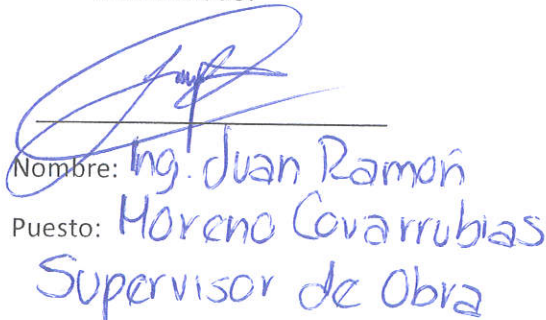 Nombre: Ing. Juan Ramón
Puesto: Moreno Covarrubias
Supervisor de Obra